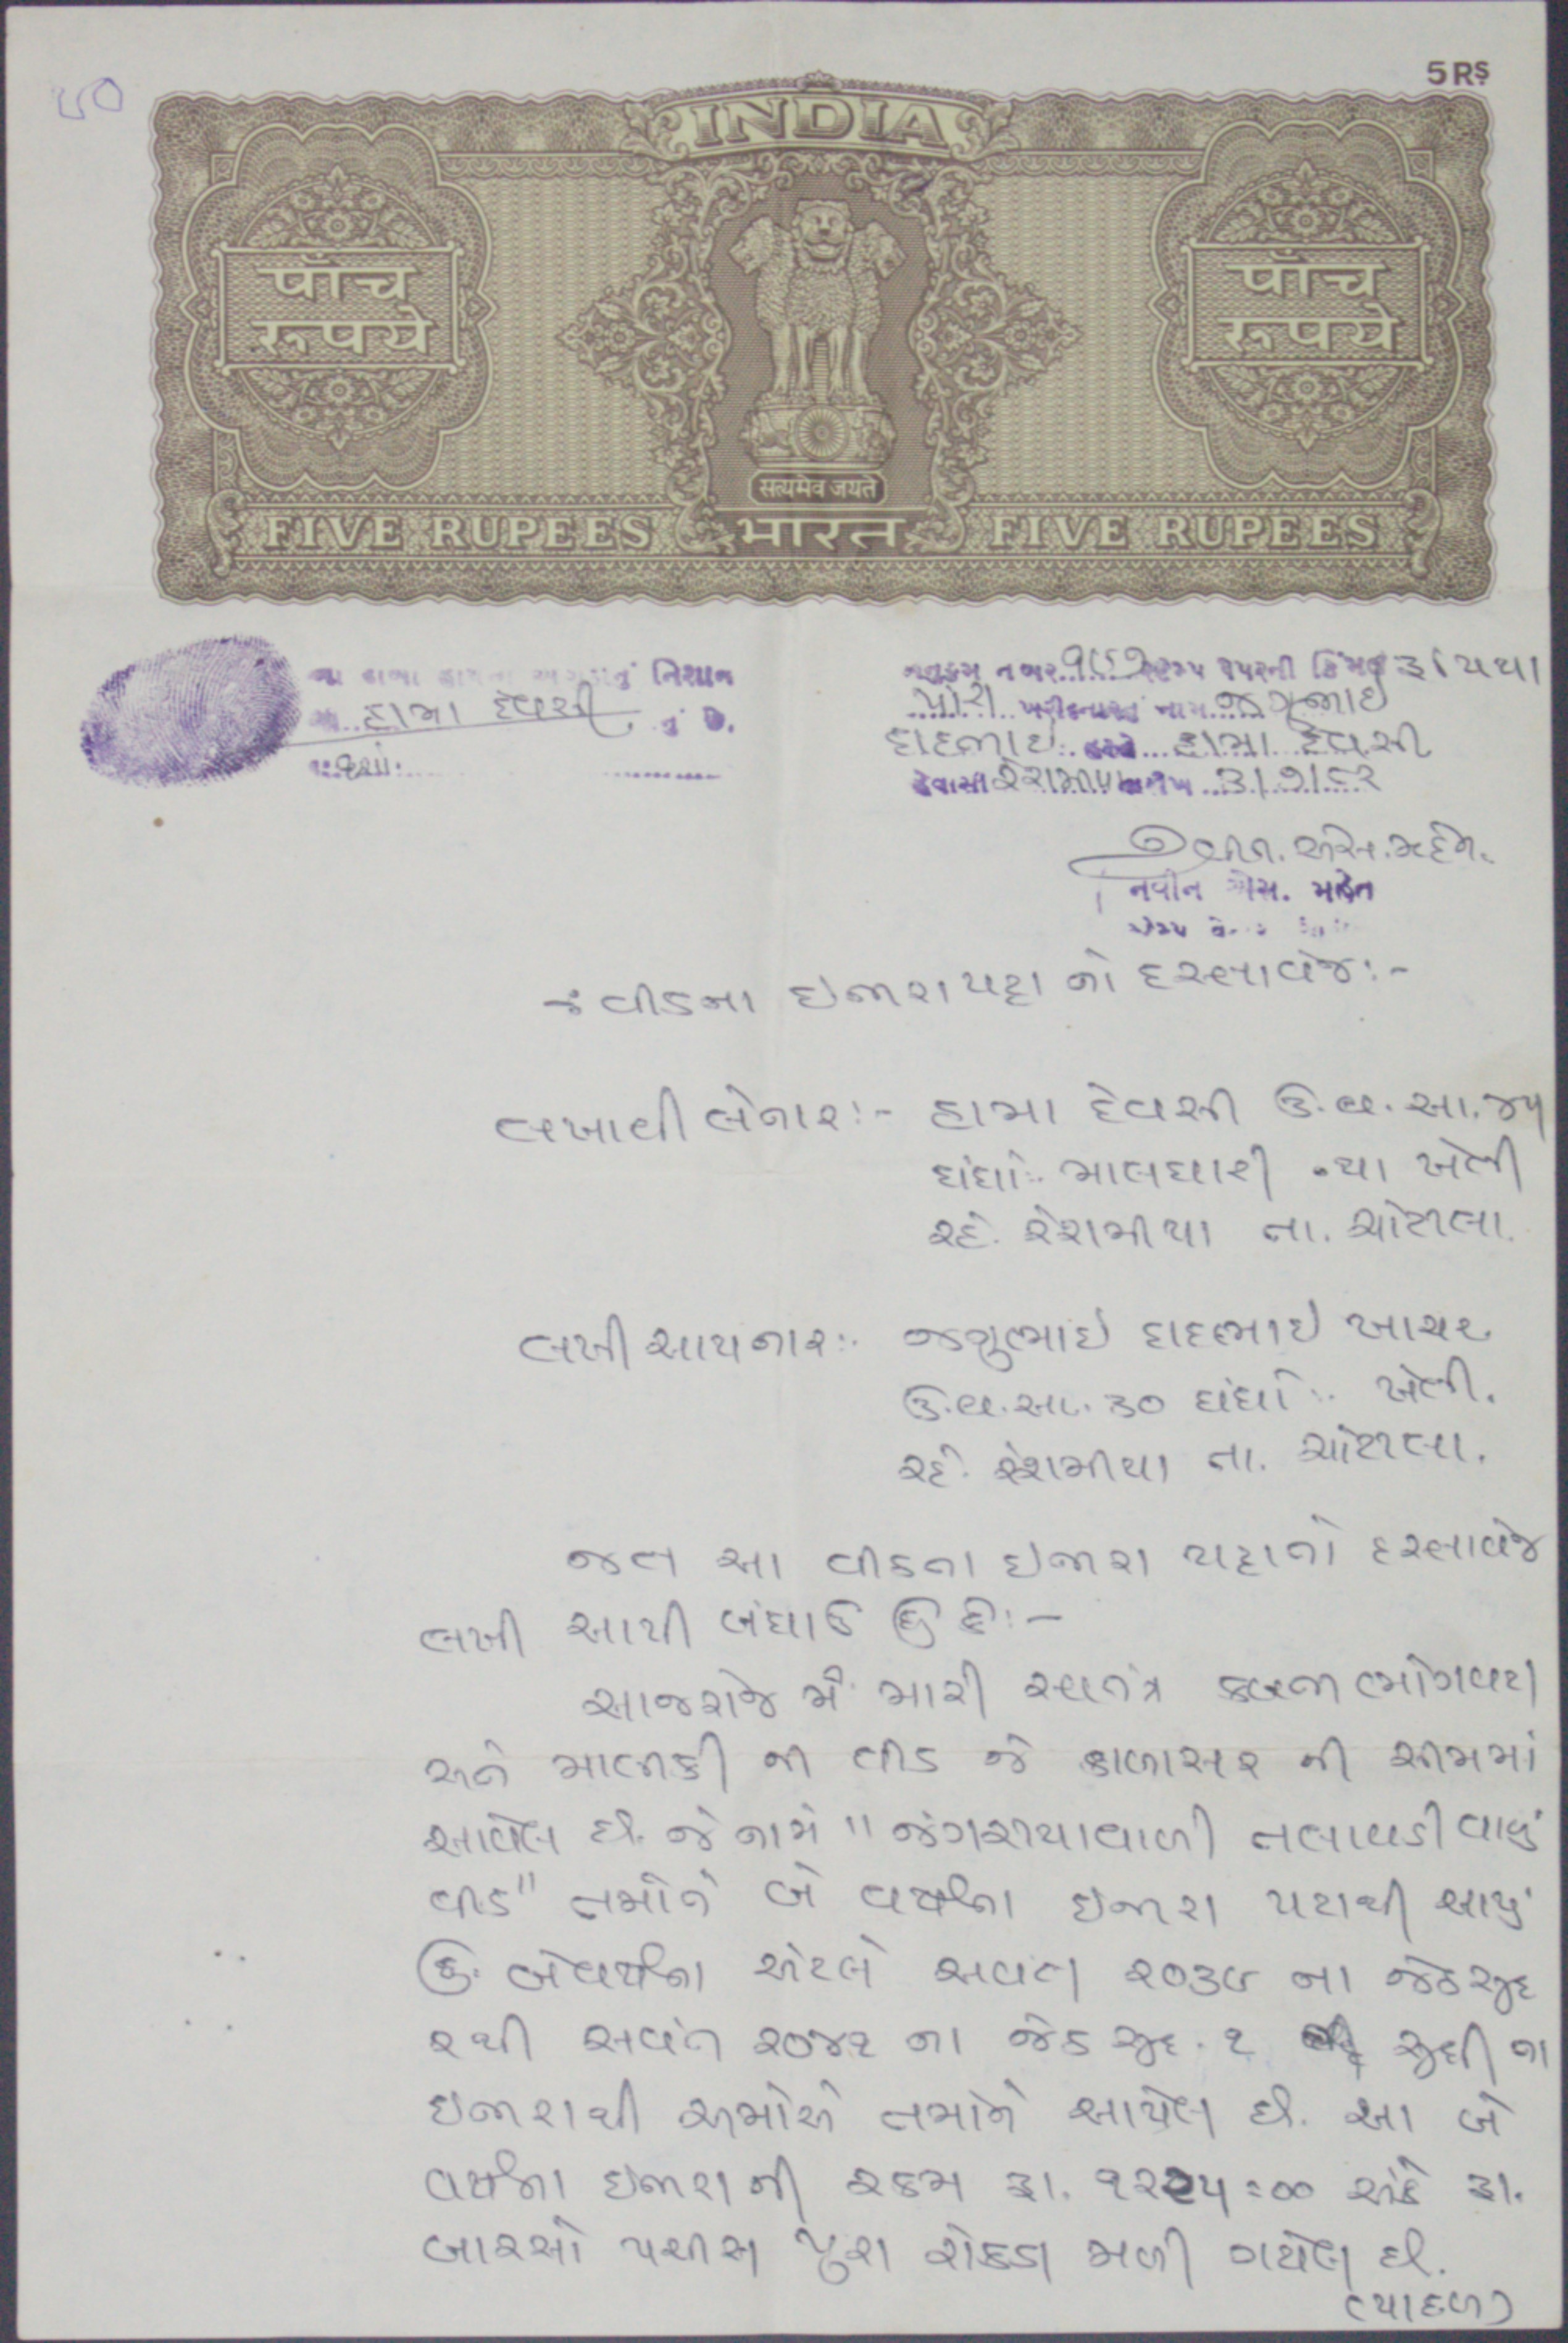 ૫૦
5 RS
INDIA
पाँच
रूपये
पाँच
रूपये
सत्यमेव जयते
FIVE RUPEES भारत FIVE RUPEES
નિશાન
હામા દેવસી
નંબર સ્ટેમ્પ પેપરની કિંમત રૂા પાંચ
પોરા ખરીદનારનું નામ જગુભાઇ
દાદભાઇ હસ્તે હામા દેવસી
રહેવાસી રેશમીયા તારીખ ૩/૭/૮૨
નવીન. એસ. મહેતા.
નવીન એસ. મહેતા
-: વીડના ઇજારા પટ્ટા નો દસ્તાવેજ :-
લખાવી લેનાર :- હામા દેવસી ઉ.વ. આ. ૪૫
ધંધો :- માલધારી ખેતી
રહે. રેશમીયા તા. ચોટીલા.
લખી આપનાર :- જગુભાઇ દાદભાઇ ખાચર
ઉ.વ.આ. ૩૦ ધંધો :- ખેતી.
રહે. રેશમીયા તા. ચોટીલા.
જત આ વીડના ઇજારા પટ્ટાનો દસ્તાવેજ
લખી આપી બંધાઉ છુ કે :-
આજરોજ મેં મારી સ્વતંત્ર કબજા ભોગવટા
અને માલીકી ની વીડ જે કાળાસર ની સીમમાં
આવેલ છે. જે નામે "જંગરીયાવાળી તલાવડી વાળું
વીડ" તમોને બે વર્ષના ઇજારા પટાથી આપું
છુ. બેવર્ષના એટલે સવત ૨૦૩૯ ના જેઠસુદ
૨થી સવંત ૨૦૪૧ ના જેઠ સુદ. ૧ સુધી ના
ઇજારાથી અમોએ તમોને આપેલ છે. આ બે
વર્ષના ઇજારા ની રકમ રૂા. ૧૨૨૫=૦૦ અંકે રૂા.
બારસો પચીસ પુરા રોકડા મળી ગયેલ છે.
(પાછળ)